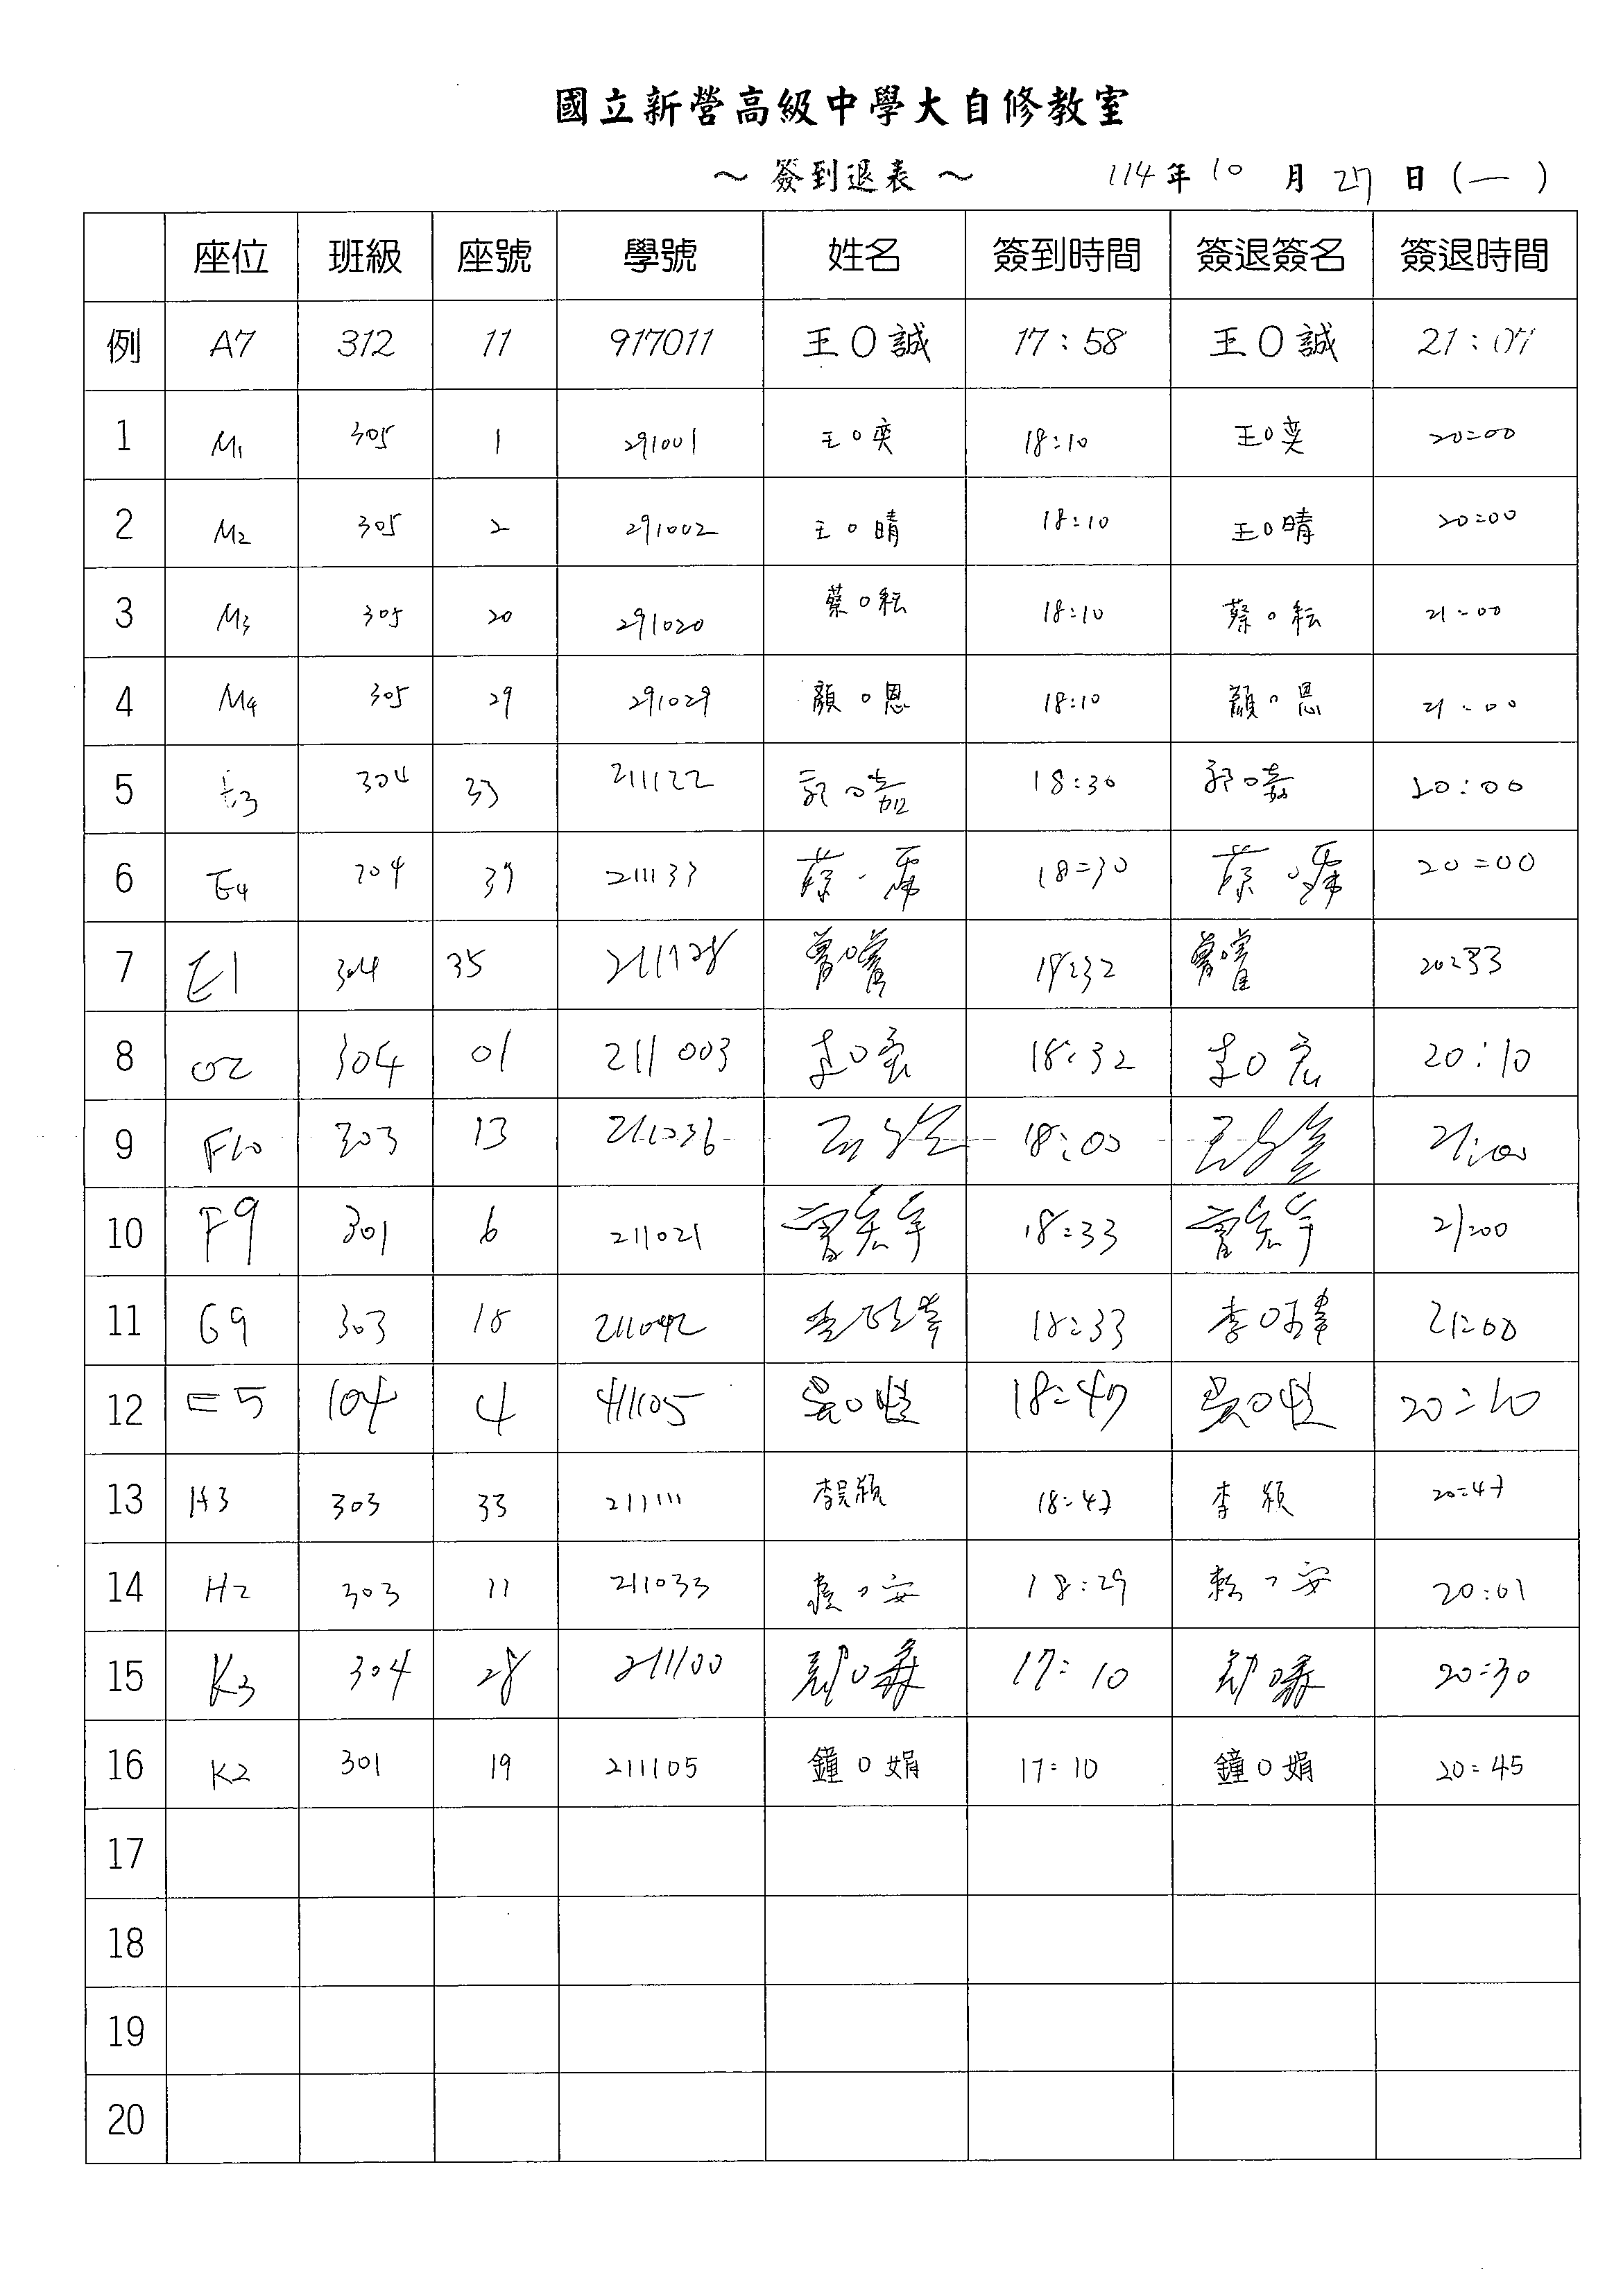 國立新營高級中學大自修教室
～ 簽到退表 ～ 114年 10 月 27 日 (一)
座位 班級 座號 學號 姓名 簽到時間 簽退簽名 簽退時間
例 A7 312 11 917011 王O誠 17:58 王O誠 21:07
1 M1 305 1 291001 王O奕 18:10 王O奕 20:00
2 M2 305 2 291002 王O晴 18:10 王O晴 20:00
3 M3 305 20 291020 蔡O耘 18:10 蔡O耘 21:00
4 M4 305 29 291029 顏O恩 18:10 顏O恩 21:00
5 E3 304 33 211122 郭O嘉 18:30 郭O嘉 20:00
6 E4 304 39 211133 蔡 18:30 蔡 20:00
7 E1 304 35 211128 曾 18:32 曾 20:33
8 304 01 211003 李O宏 18:32 李O宏 20:10
9 F10 303 13 211036 18:00 21:00
10 F9 301 6 211021 曾宏宇 18:33 曾宏宇 21:00
11 G9 303 18 211042 李 18:33 李 21:00
12 E5 104 4 411105 吳O愷 18:47 吳O愷 20:10
13 H3 303 33 211111 李吳穎 18:47 李 穎 20:47
14 H2 303 11 211033 安 18:29 安 20:01
15 K3 304 28 211100 17:10 20:30
16 K2 301 19 211105 鐘O娟 17:10 鐘O娟 20:45
17
18
19
20